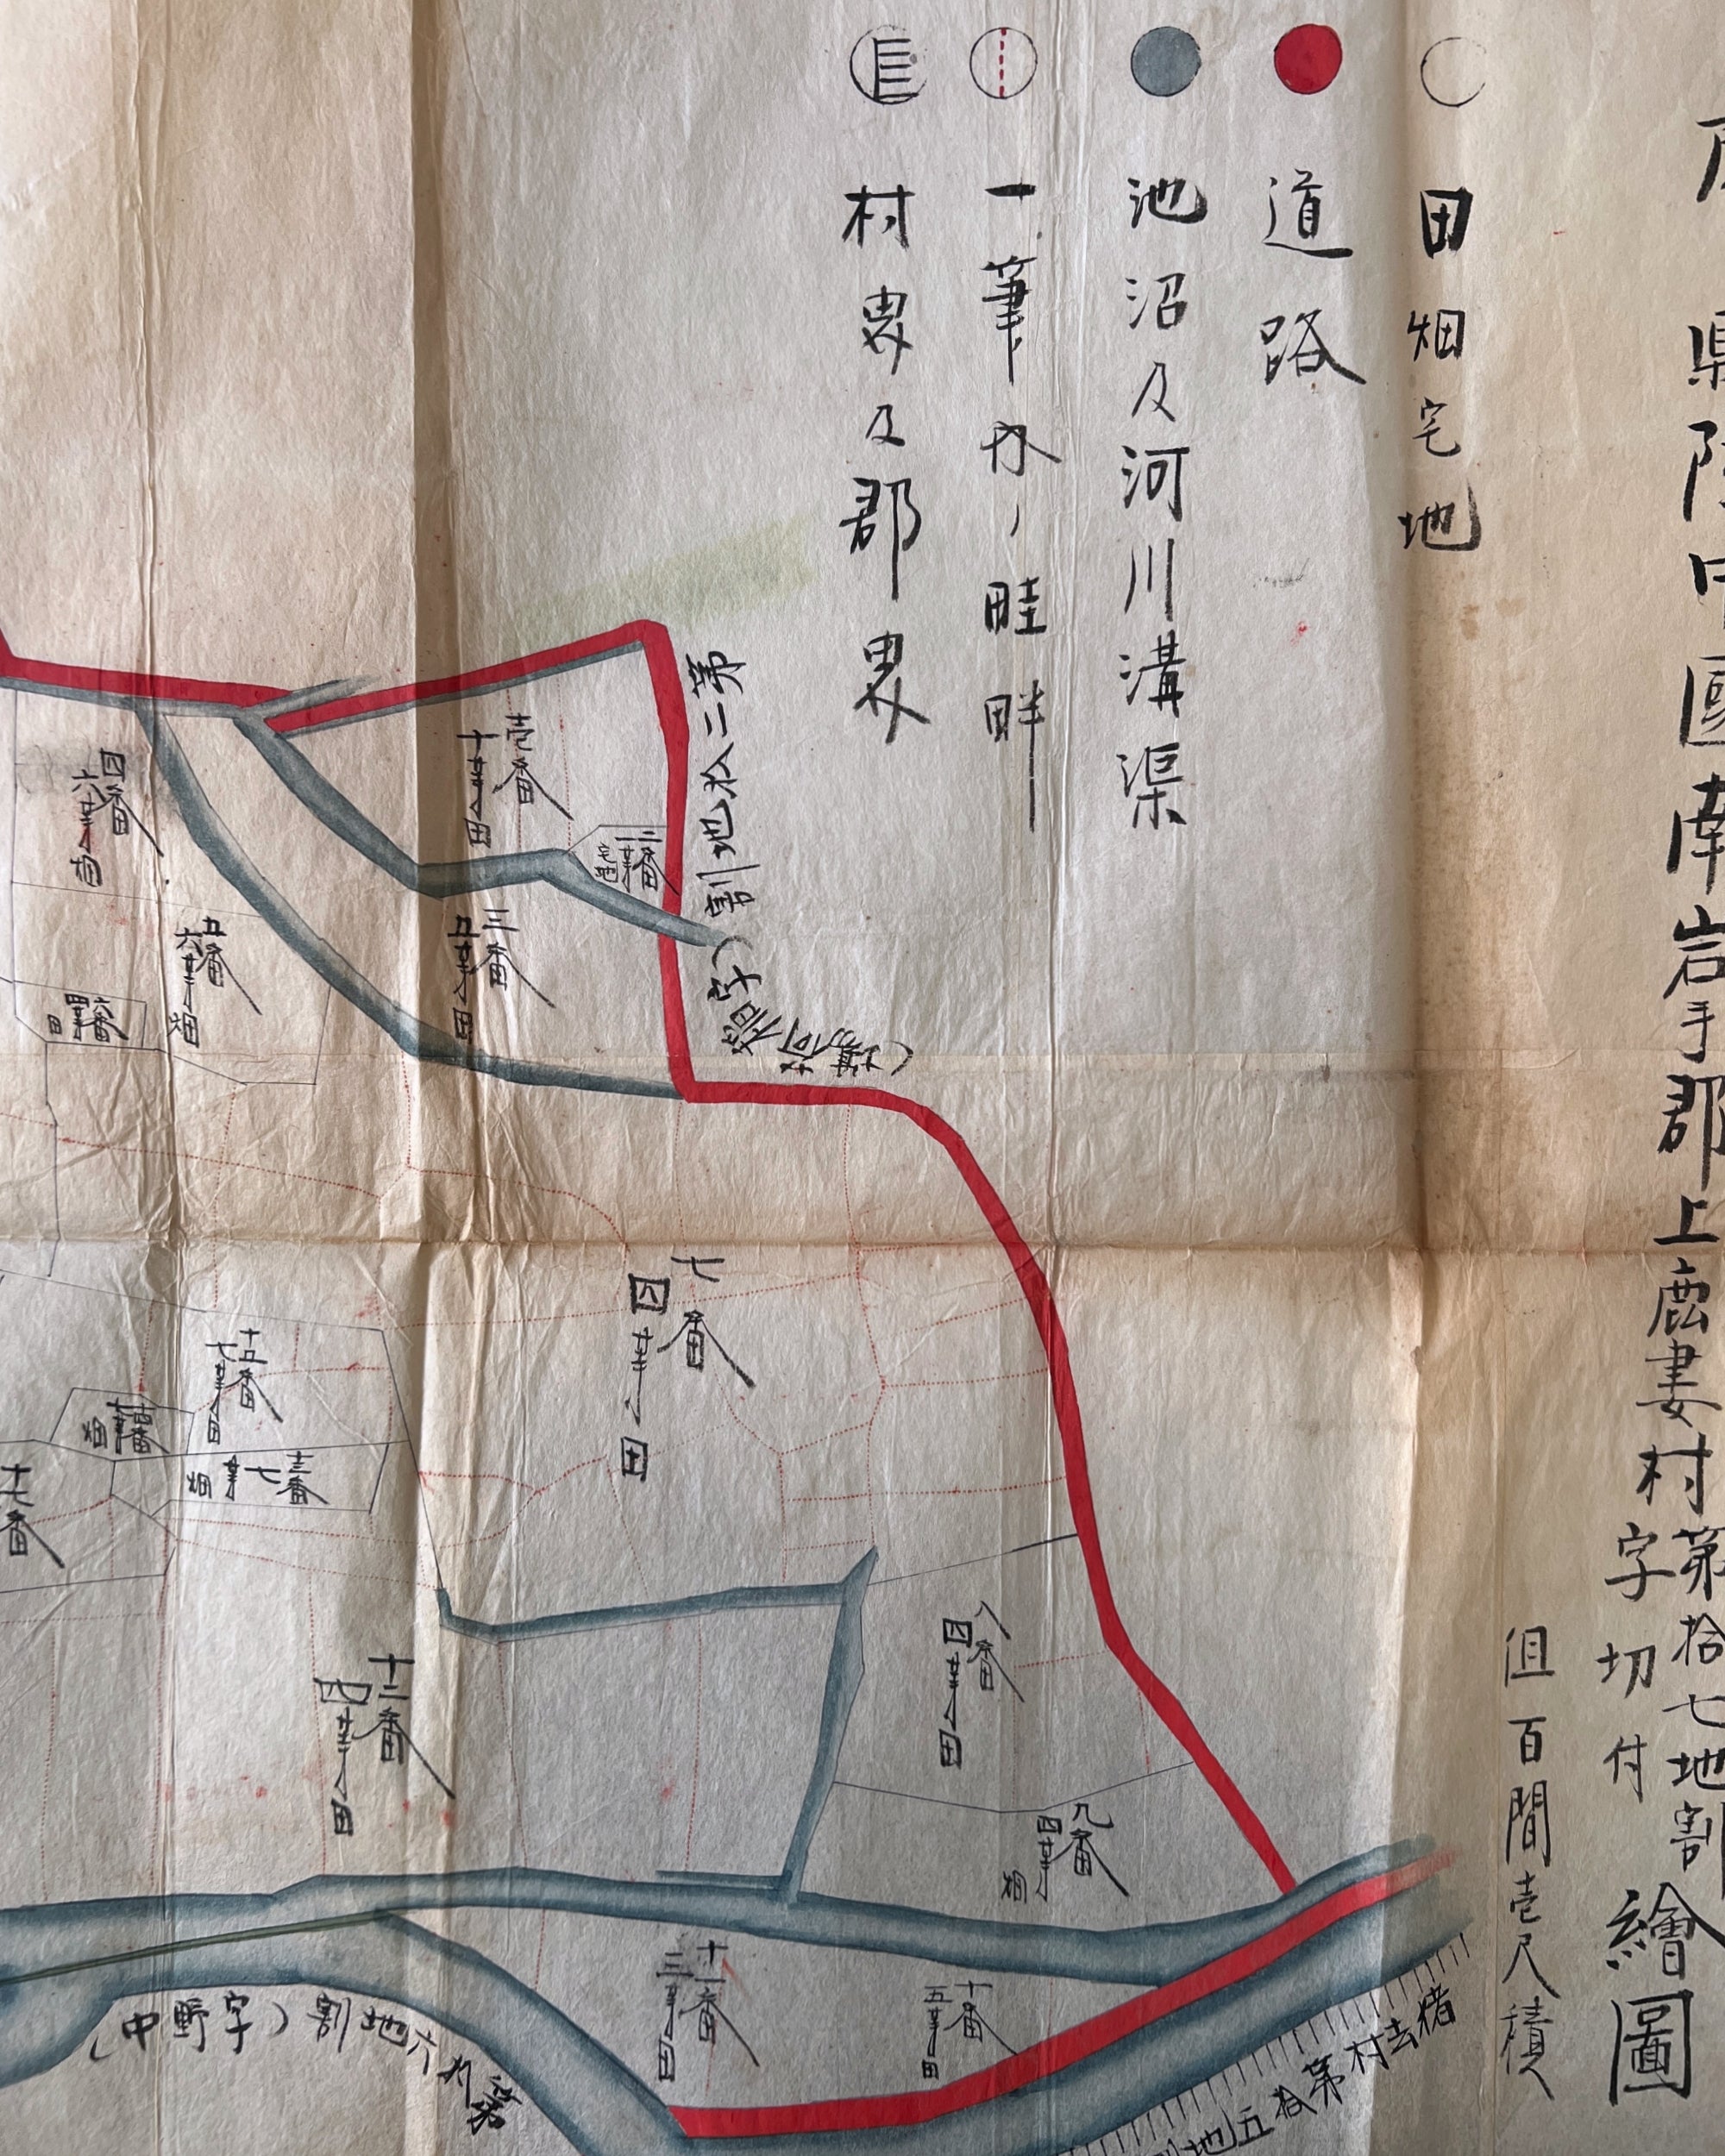 県陸中國南岩手郡上鹿妻村第拾七地割
字切付
繪圖
但百間壱尺積
田畑宅地
道路
池沼及河川溝渠
一筆内ノ畦畔
村界及郡界
第二拾地割
(字稲荷場)
壱番
十等田
二番
宅地
三番
五等田
四番
六等畑
五番
六等畑
六番
四等田
七番
四等田
八番
四等田
九番
四等畑
十番
五等田
十一番
三等田
十二番
四等田
十三番
七等畑
畑
十五番
七等田
十七番
六地割(字野中)
猪去村第拾五地